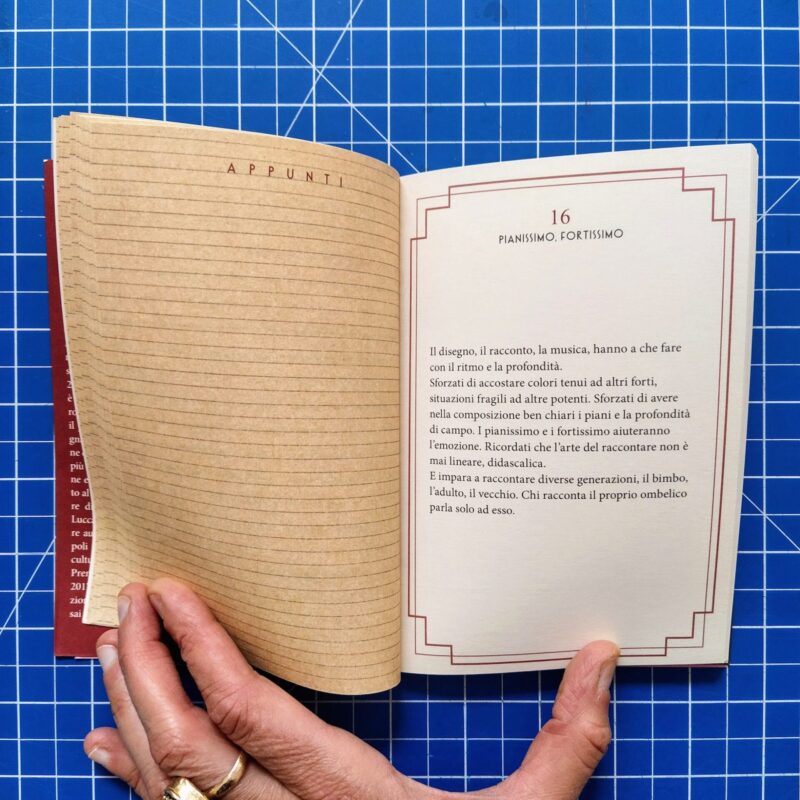 APPUNTI
16
PIANISSIMO, FORTISSIMO
Il disegno, il racconto, la musica, hanno a che fare
con il ritmo e la profondità.
Sforzati di accostare colori tenui ad altri forti,
situazioni fragili ad altre potenti. Sforzati di avere
nella composizione ben chiari i piani e la profondità
di campo. I pianissimo e i fortissimo aiuteranno
l'emozione. Ricordati che l'arte del raccontare non è
mai lineare, didascalica.
E impara a raccontare diverse generazioni, il bimbo,
l'adulto, il vecchio. Chi racconta il proprio ombelico
parla solo ad esso.
è
il
più
ne e
to al
Lucca
re au
poli
cultu
Prem
201
zion
sai